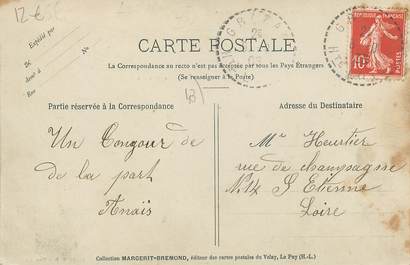 12 €
Expédié par
CARTE POSTALE
La Correspondance au recto n'est pas acceptée par tous les Pays Étrangers
(Se renseigner à la Poste)
Partie réservée à la Correspondance
Adresse du Destinataire
Un Bonjour de
de la part
Anaïs
Mr Heurtier
rue de champagne
N. 14 St Etienne
Loire
REPUBLIQUE FRANÇAISE
10c
POSTES
Collection MARGERIT-BREMOND, éditeur des cartes postales du Velay, Le Puy (H.-L.)